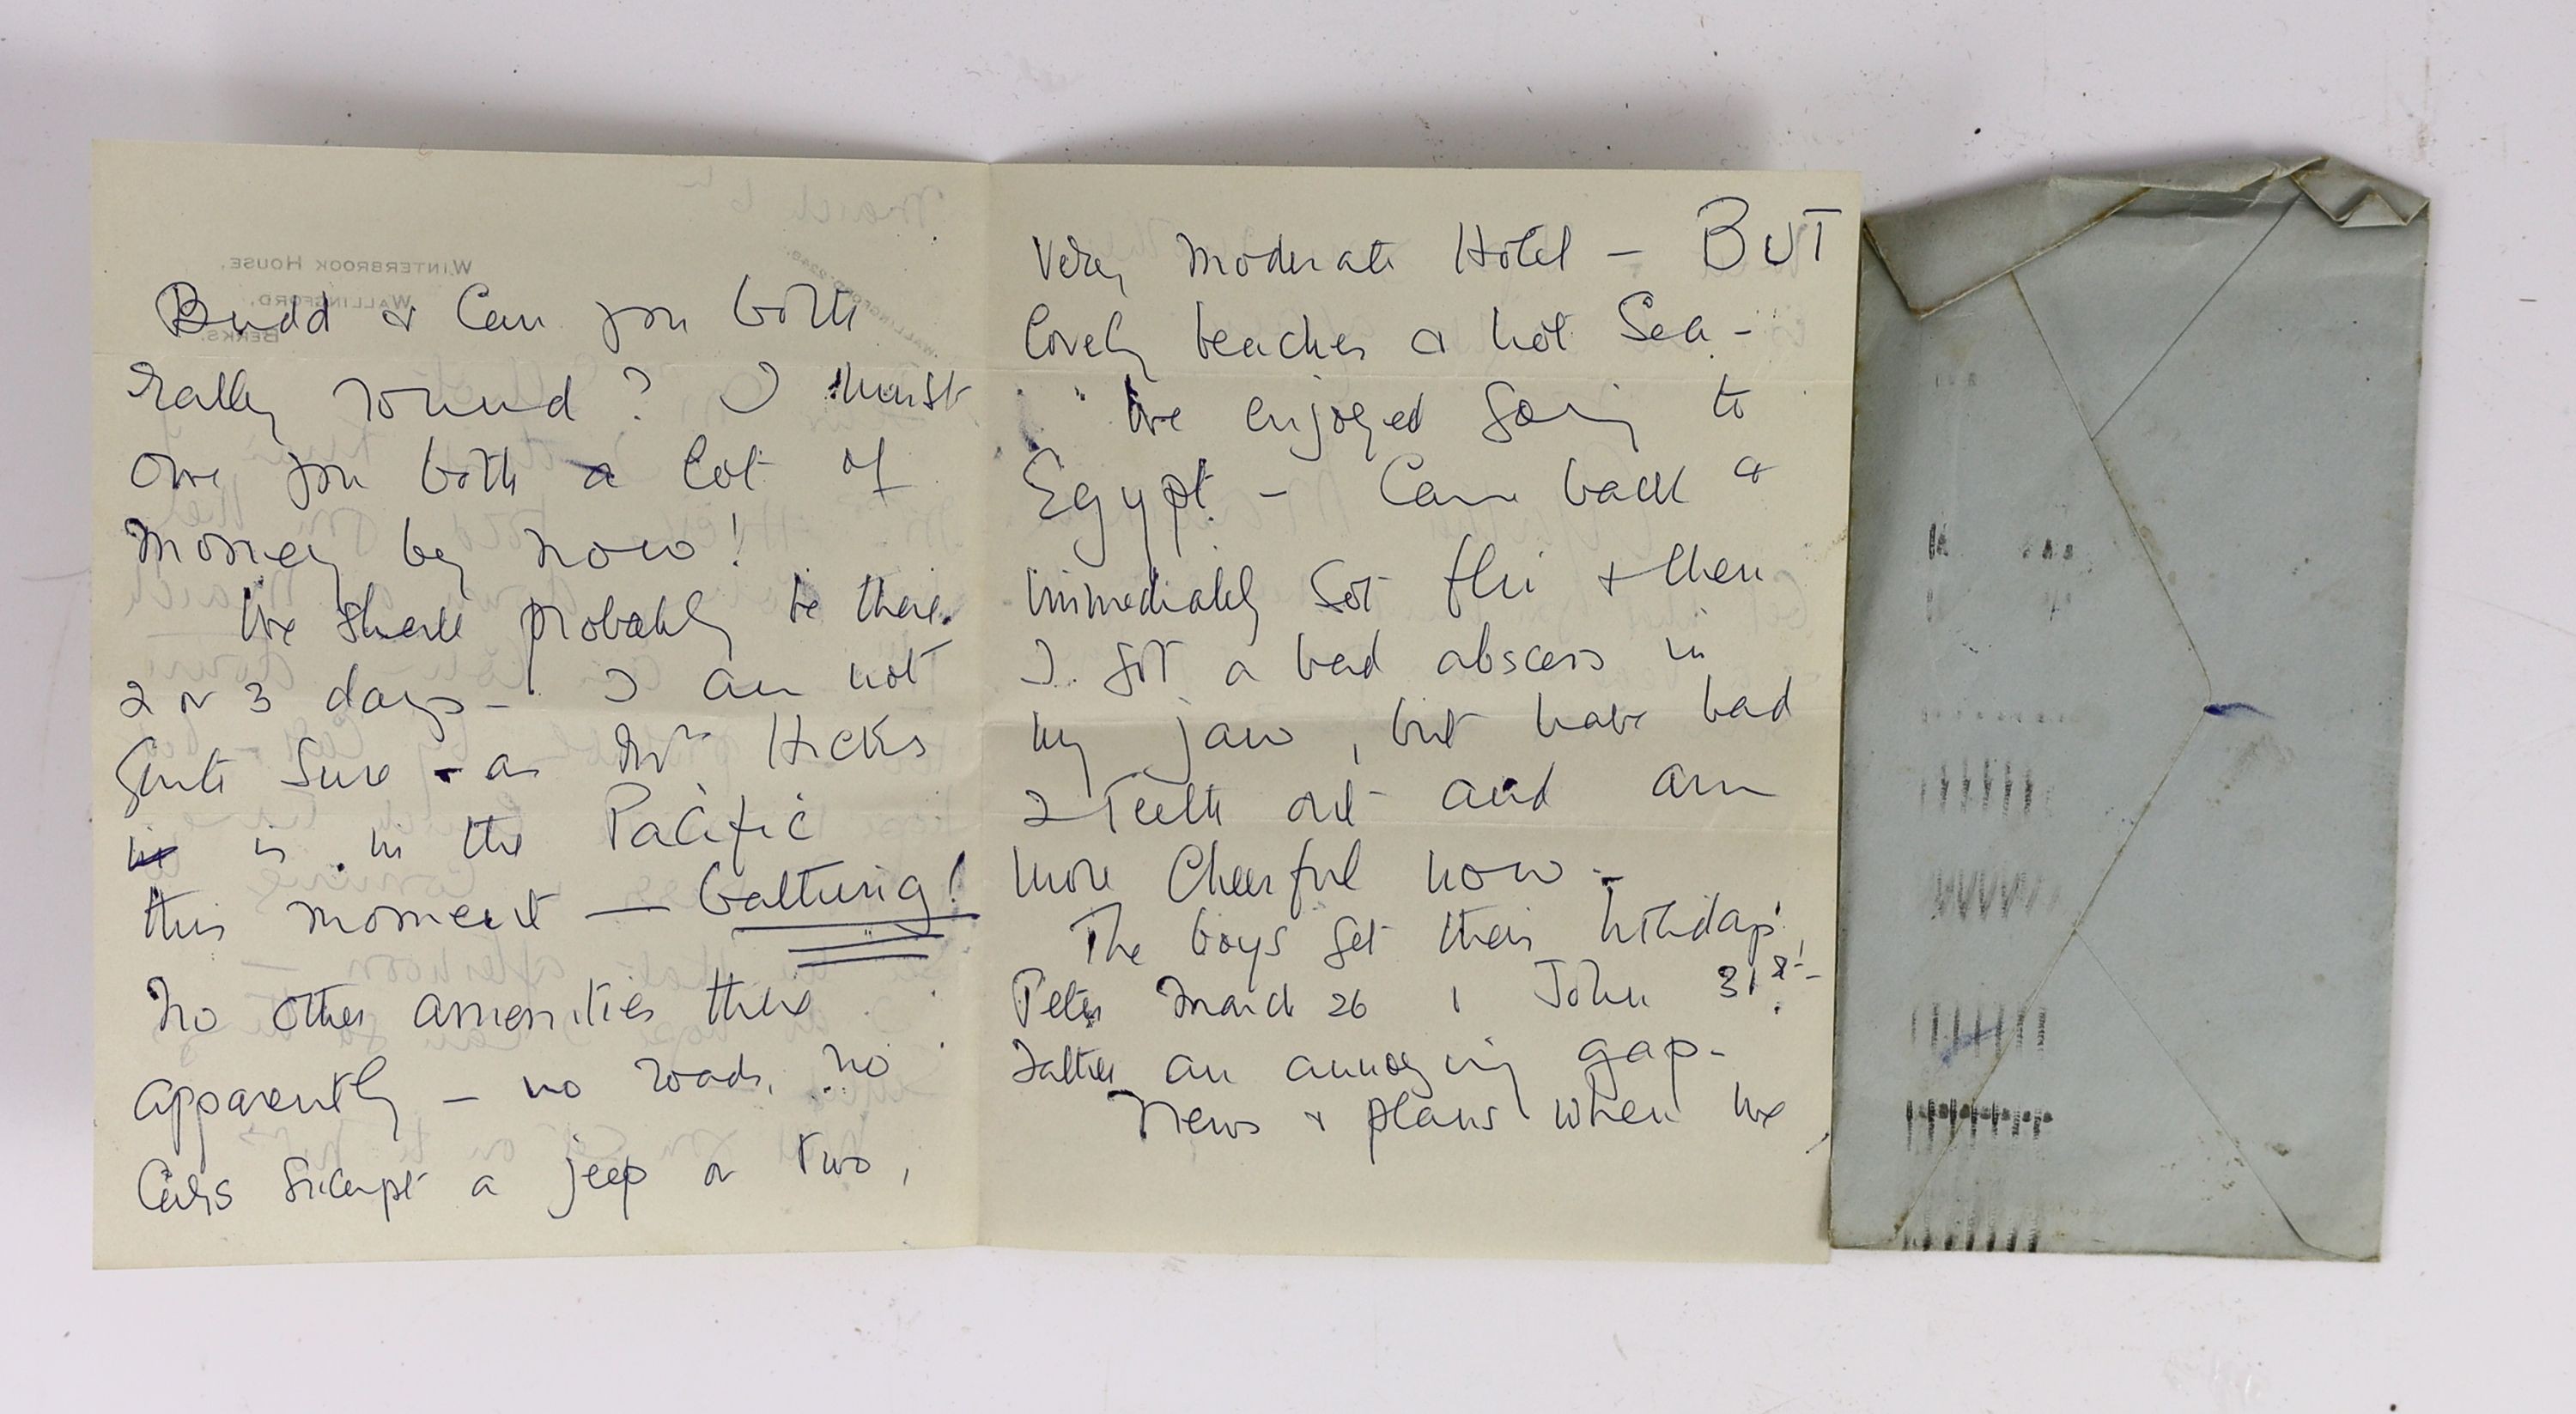 Budd & Can you both
rally round? I must
owe you both a lot of
money by now!
We shall probably be there
2 or 3 days - I am not
quite sure - as Mr Hicks
is in the Pacific
this moment — bathing!
No other amenities there
apparently - no roads, no
Cars except a jeep or two,
Very moderate Hotel - BUT
lovely beaches & hot Sea -
We enjoyed going to
Egypt - Came back &
immediately got flu & then
I got a bad abscess in
my jaw, but have had
2 teeth out and am
more Cheerful now -
The boys get their holidays,
Peter March 26, John 31st -
rather an annoying gap -
News & plans when we
WINTERBROOK HOUSE,
WALLINGFORD,
BERKS.
March 6th